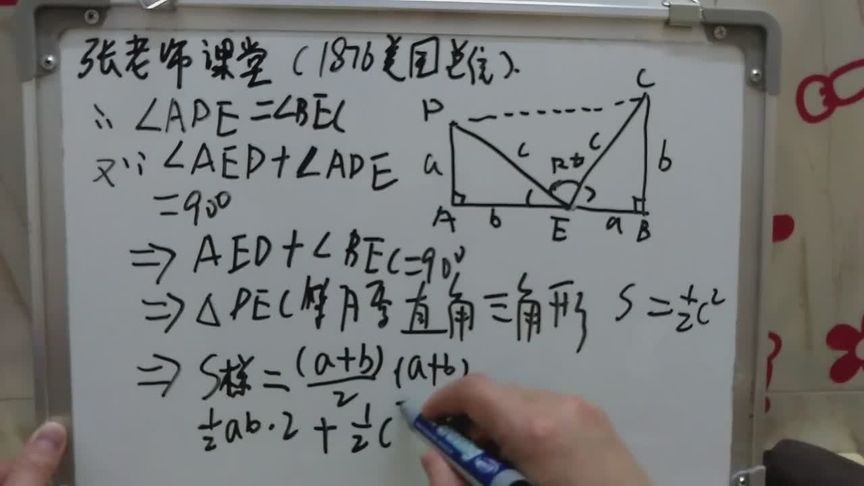 张老师课堂（1876美国总统）.
∴ ∠ADE=∠BEC
又∵ ∠AED+∠ADE
=90°
⇒ AED+∠BEC=90°
⇒ △DEC等腰直角三角形 S=½c²
⇒ S梯=(a+b)/2 (a+b)
½ab·2+½c
D
C
a
c
c
b
Rt
A
b
E
a
B